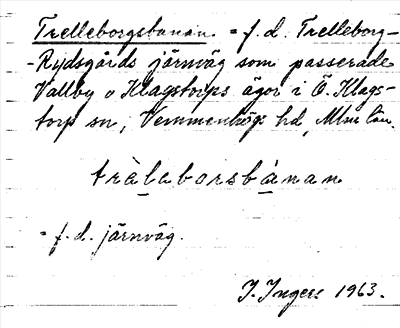 Trelleborgsbanan. = f.d. Trelleborg-
-Rydsgårds järnväg som passerade
Vallby o Klagstorps ägor i Ö. Klags-
torp sn, Vemmenhögs hd, Mlm län.
trèlaborsbànan
= f.d. järnväg.
I. Ingers 1963.